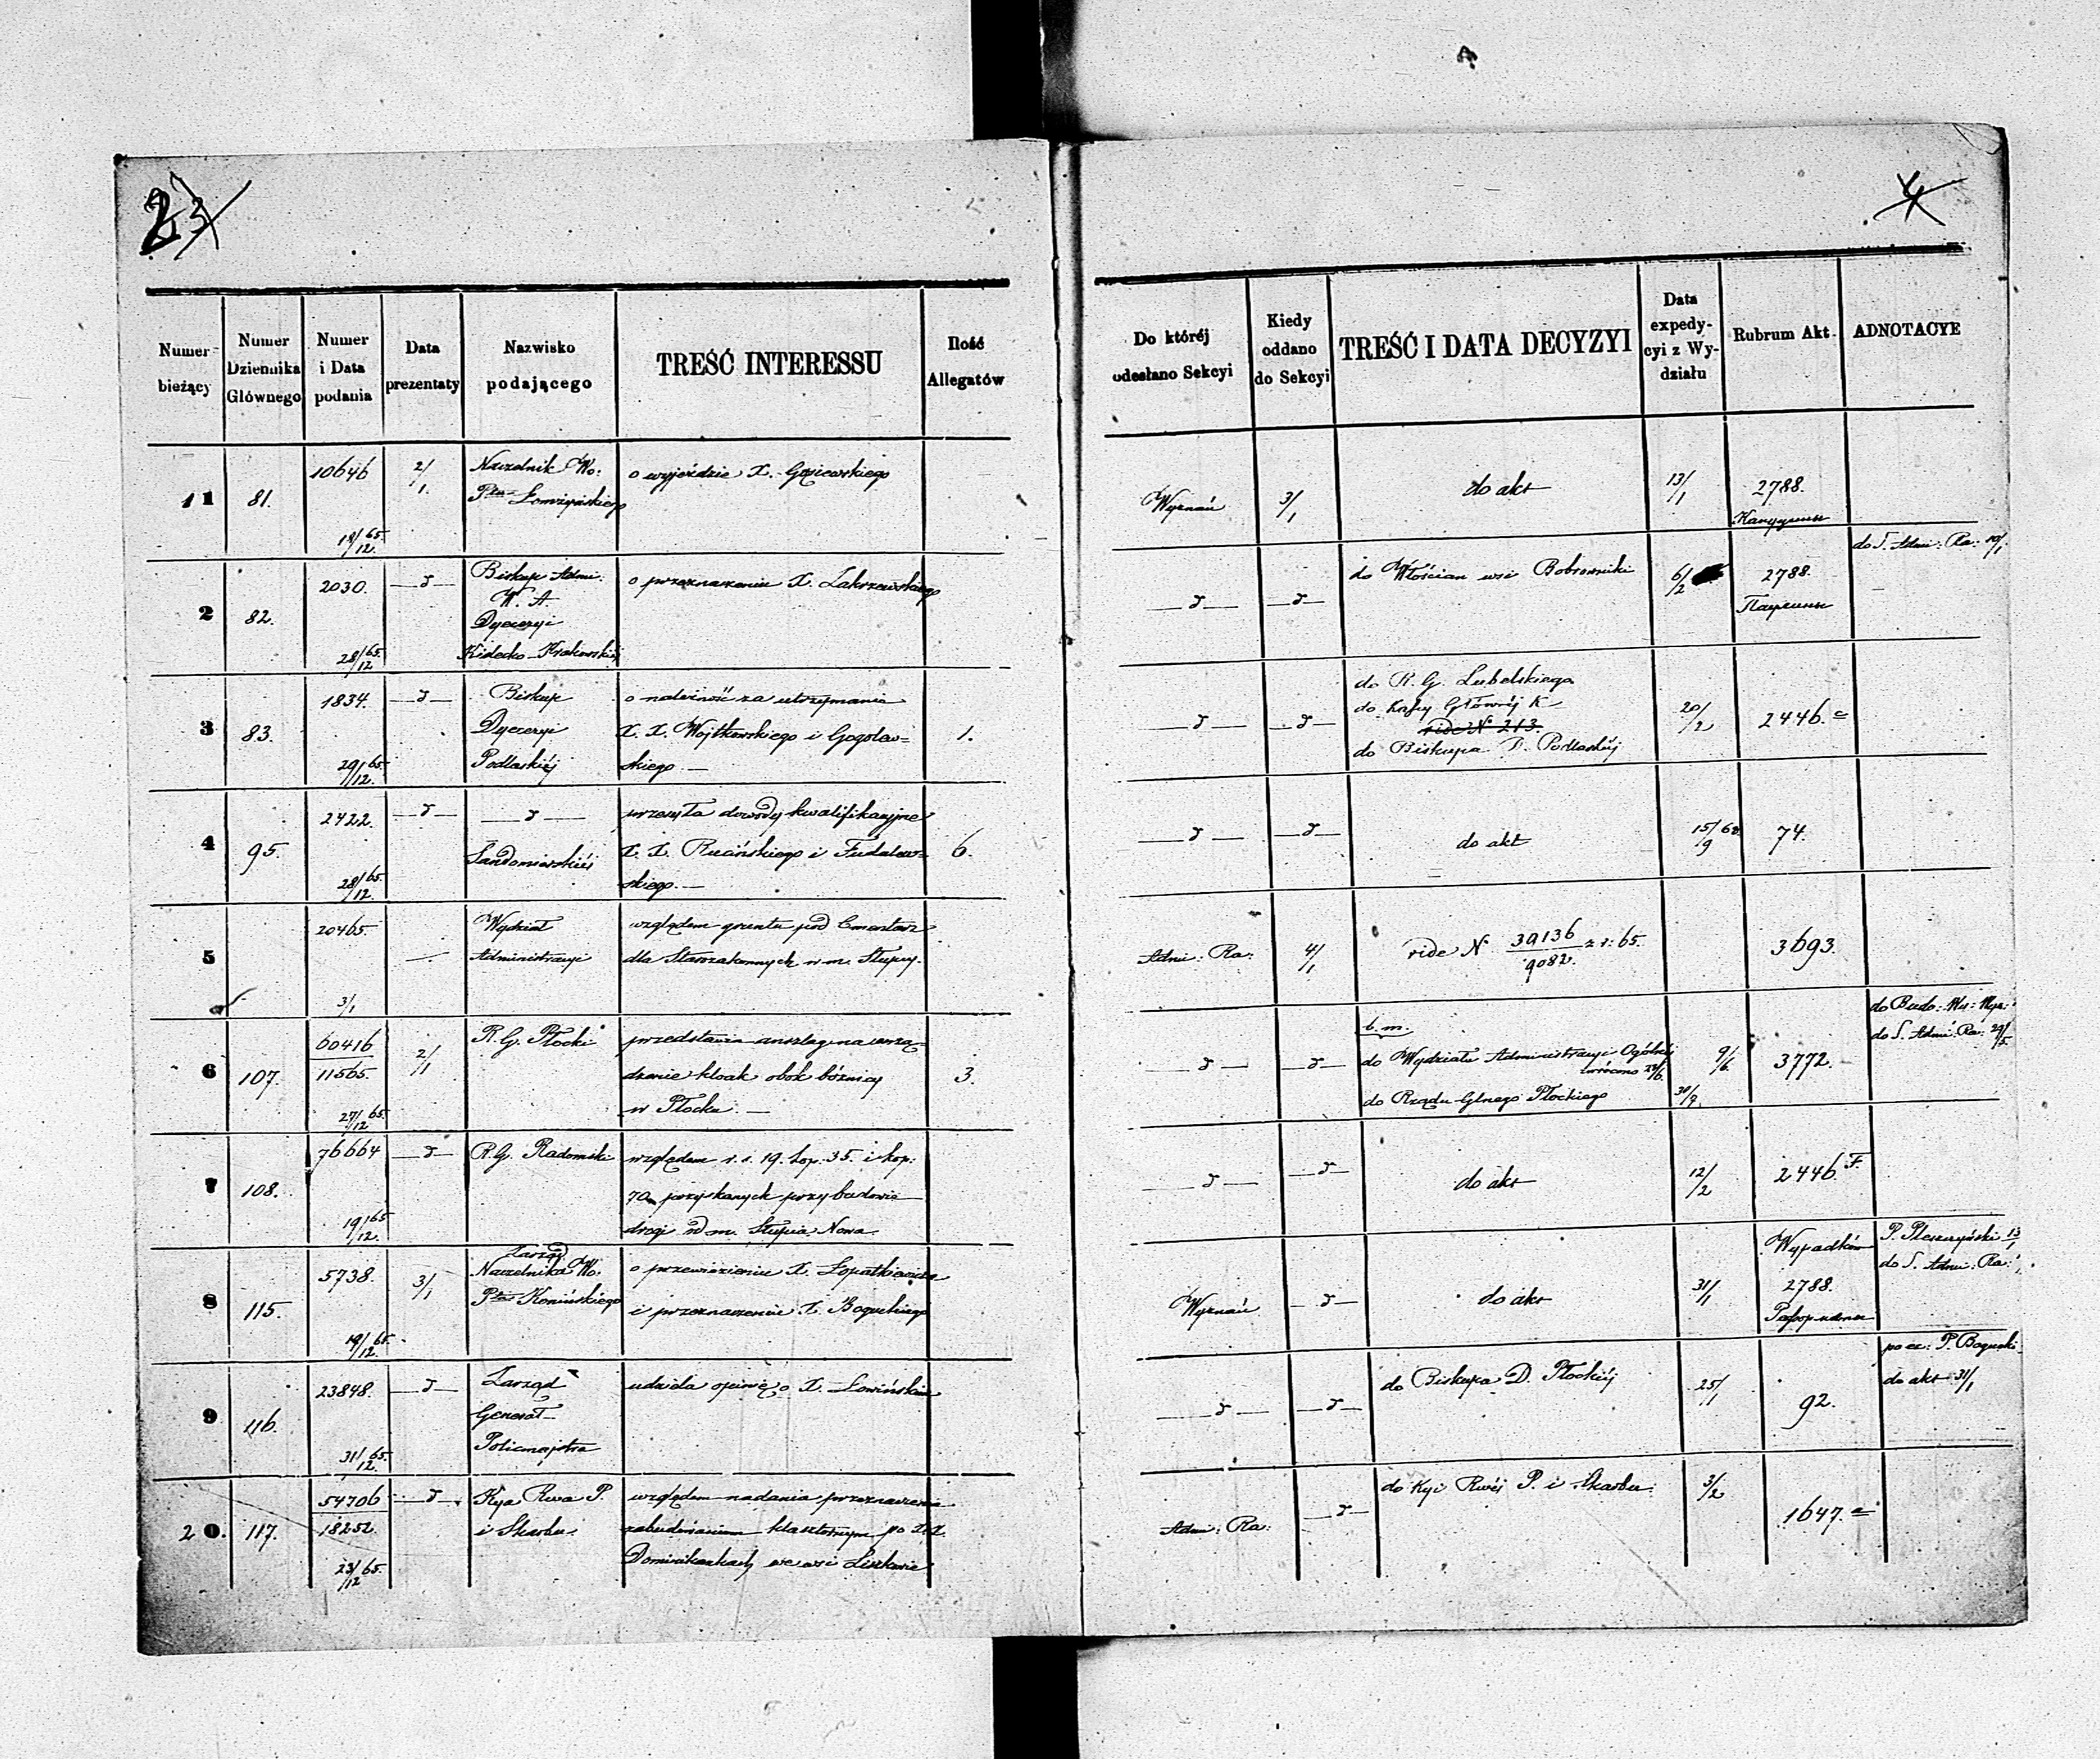 23
4
Numer bieżący
Numer Dziennika Głównego
Numer i Data podania
Data prezentaty
Nazwisko podającego
TREŚĆ INTERESSU
Ilość Allegatów
Do której odesłano Sekcyi
Kiedy oddano do Sekcyi
TREŚĆ I DATA DECYZYI
Data expedy-cyi z Wy-działu
Rubrum Akt.
ADNOTACYE
11
81.
10646
18/12 65.
2/1.
Naczelnik Wo:
Pta Łomżyńskiego
o wyjeździe X. Gąsiewskiego
Wyznań
3/1
do akt
13/1
2788.
2
82.
2030.
28/12 65.
—d—
Biskup Admi:
W. A.
Dyecezyi
Kielecko-Krakowskiéj
o przeznaczeniu X. Zakrzewskiego
—d—
—d—
do Włościan wsi Bobrowniki
6/2
2788.
do S. Admi: Ra: 10/1
3
83.
1834.
29/12 65.
—d—
Biskup
Dyecezyi
Podlaskiéj
o należność za utrzymanie
X. X. Wojtkowskiego i Gogolew=
skiego.—
1.
—d—
—d—
do R. G. Lubelskiego
do Kassy Głównéj K
vide № 213.
do Biskupa D. Podlaskiéj
20/2
2446. c
4
95.
2422.
28/12 65.
—d—
—d—
Sandomierskiéj
przesyła dowody kwalifikacyjne
X. X. Rucińskiego i Fudalew=
skiego.—
6.
—d—
—d—
do akt
15/9 68.
74.
5
20465.
3/1
Wydział
Administracyi
względem gruntu pod Cmentarz
dla Starozakonnych w m. Słupcy.
Admi: Ra:
4/1
vide № 39136/9082. z r: 65.
3693.
6
107.
60416
11565.
27/12 65.
2/1
R. G. Płocki
przedstawia anszlag na urzą=
dzenie kloak obok bóżnicy
w Płocku.—
3.
—d—
—d—
b. m.
do Wydziału Administracyi Ogólnéj
zwrócono 28/6.
do Rządu Glnego Płockiego
9/6.
30/9.
3772.
do S. Admi: Ra: 29/5.
7
108.
76664
19/12 65.
—d—
R. G. Radomski
względem r. s. 19. kop. 35. i kop:
70 pozyskanych przy budowie
drogi od m. Słupia Nowa
—d—
—d—
do akt
12/2
2446. F.
8
115.
5738.
19/12 65.
3/1
Zarząd
Naczelnika Wo:
Pta Konińskiego
o przewiezieniu X. Łopatkiewicza
i przeznaczeniu X. Boguckiego
Wyznań
—d—
do akt
31/1
Wypadków
2788.
P. Pleszczyński 13/1
do S. Admi: Ra:
9
116.
23848.
31/12 65.
—d—
Zarząd
Generał
Policmajstra
udziela opinię o X. Łowińskim
—d—
—d—
do Biskupa D. Płockiéj
25/1
92.
do akt 31/1
20.
117.
54706
18252.
23/12 65.
—d—
Kya Rwa P.
i Skarbu.
względem nadania przeznaczenia
zabudowaniom klasztornym po XX.
Dominikankach we wsi Liszkowie
Admi: Ra:
—d—
do Kyi Rwéj P. i Skarbu.
3/2
1647. a